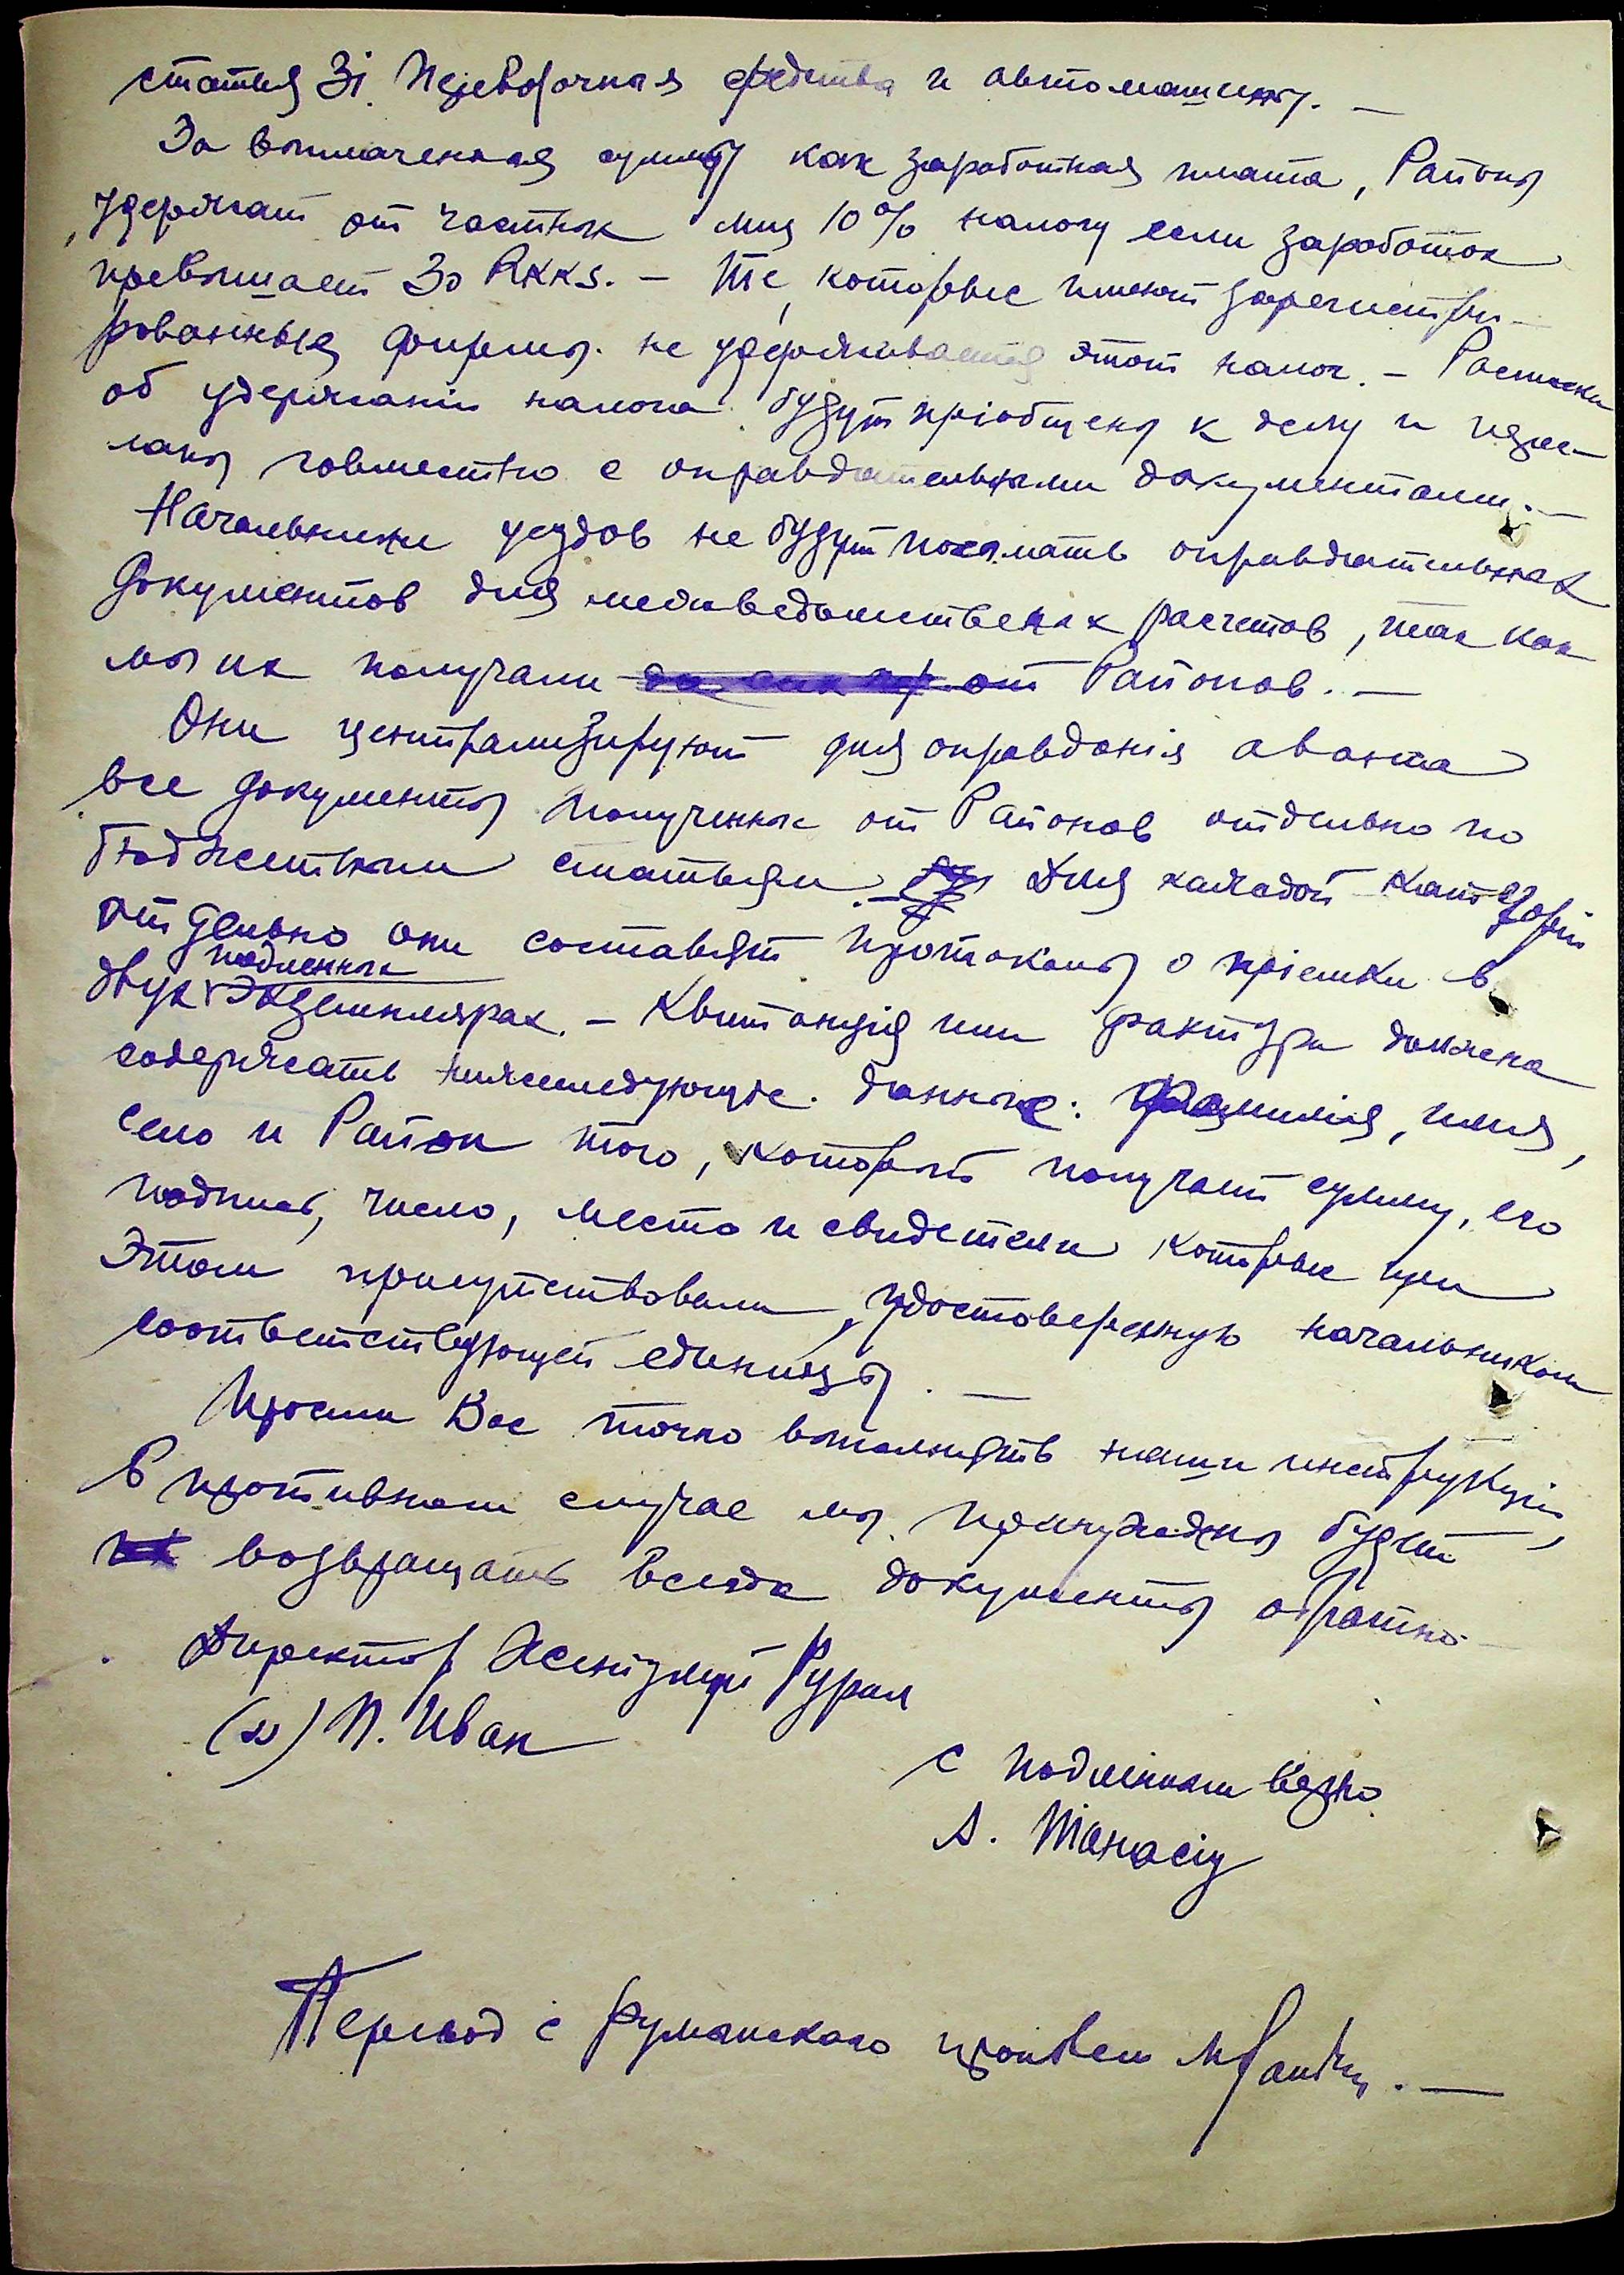 статья 3i. Перевозочная средства и автомашины. —
За выплаченная сумму как заработная плата, Районы
удержат от частных лиц 10% налогу если заработок
превышает 30 Rkks. — Те, которые имеют зарегистри-
рованныя фирмы. не удерживается этот налог. — Расписки
об удержанiи налога будут прiобщены к делу и
совместно с оправдательными документами. —
Начальники уездов не будут посылать оправдательных
документов для медаведомственых расчетов, так как
мы их получали от Районов. —
Они централизируют для оправданiя аванса
все документы полученные от Районов отдельно по
бюджетным статьям. — Для каждой категорiи
отдельно они составят протоколы о прiемки в
двух подленных экземплярах. — Квитанцiя или фактура должна
содержать нижеследующие. данные: фамилiя, имя,
село и Район того, который получает сумму, его
подпись, число, место и свидетели которые при
этом присутствовали, удостоверенную начальником
соответствующей единицы. —
Просим Вас точно выполнять наши инструкцiи,
В противном случае мы принуждены будем
возвращать всегда документы обратно —
Директор
(s) П. Иван
С подлинным верно
А. Танасiу
Перевод с румынскаго произвел